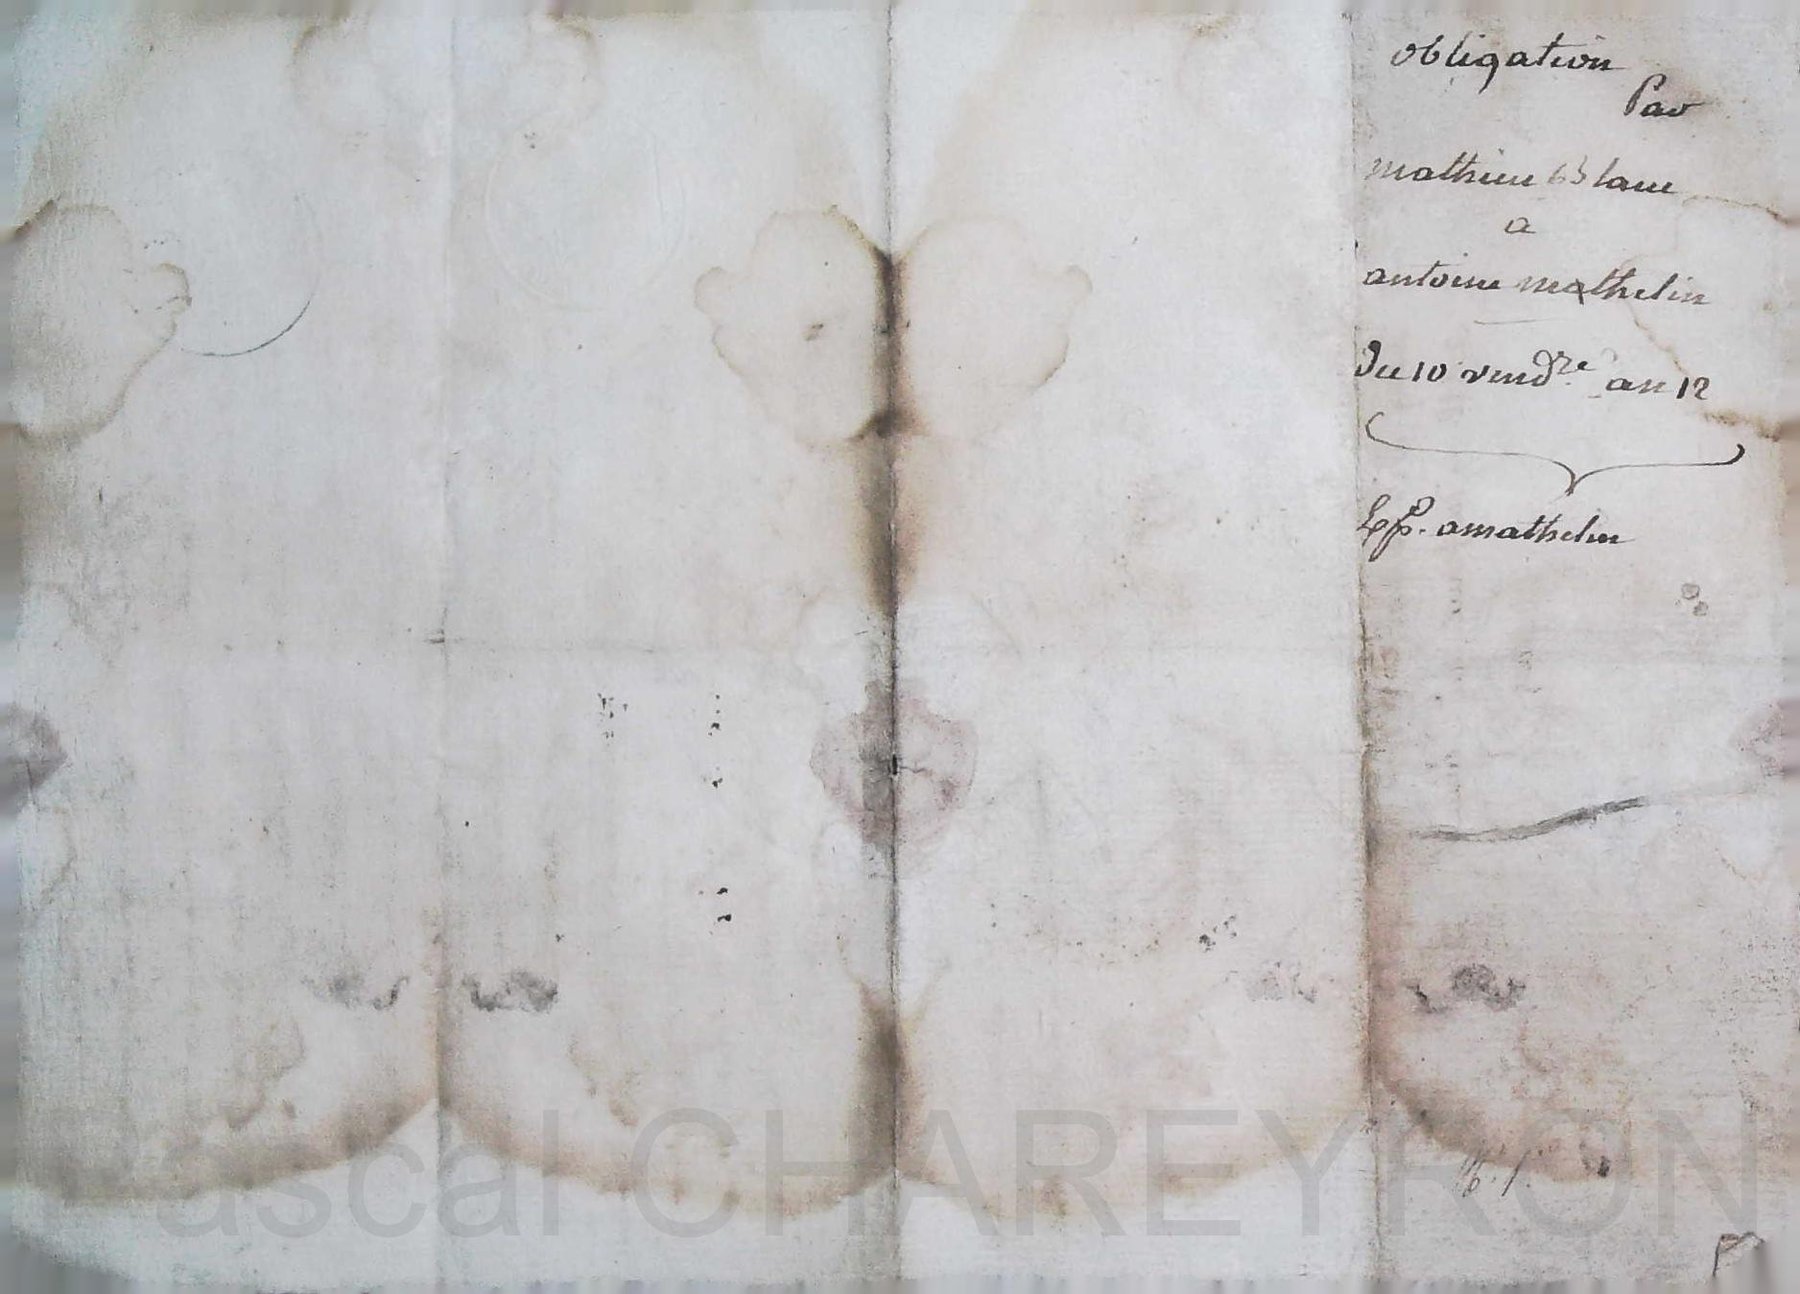 obligation
Par
mathieu Blanc
a
antoine mathelin
Du 10 vend.re an 12
amathelin
Pascal CHAREYRON